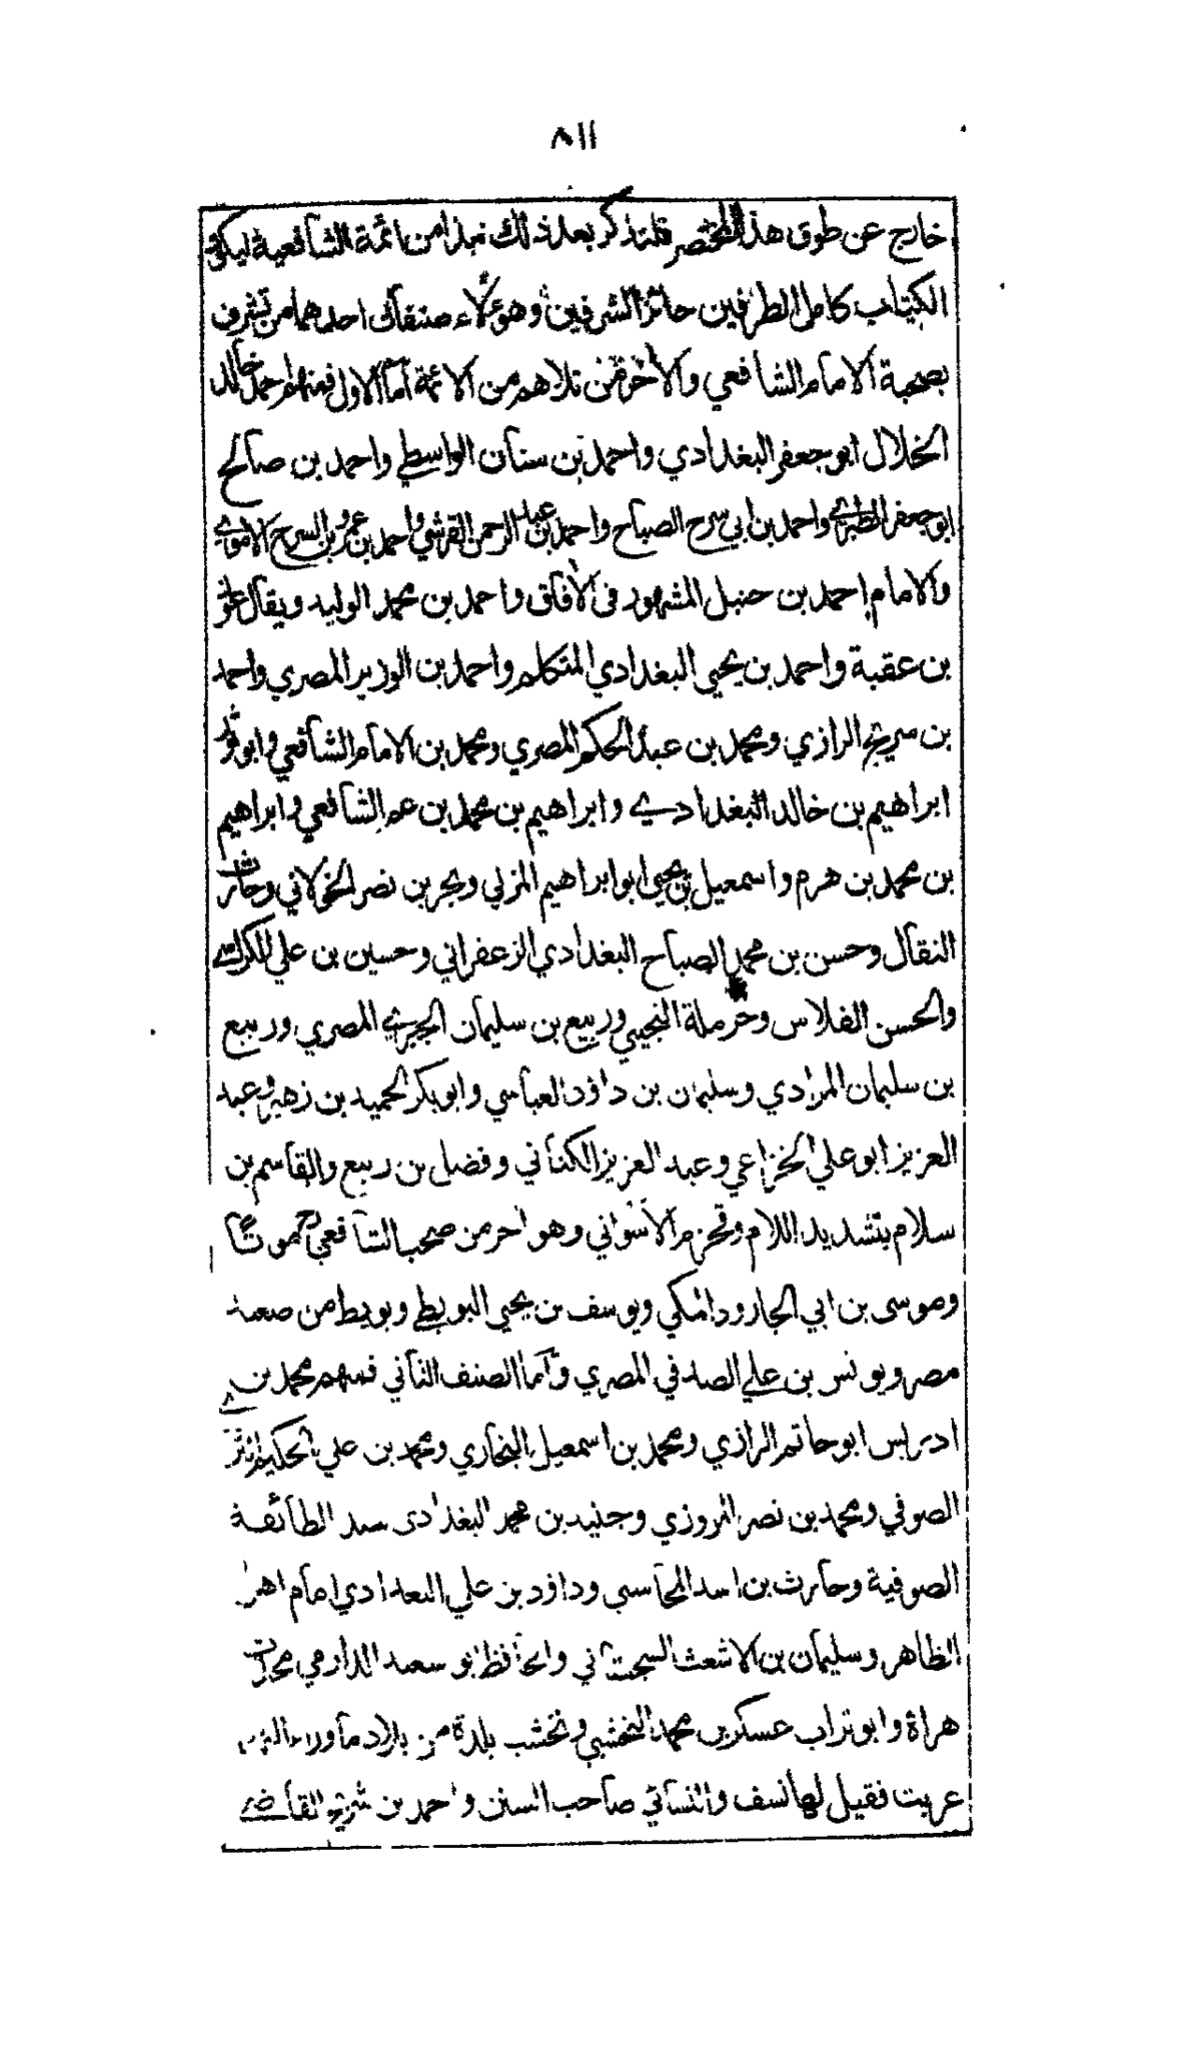 ٨١١
خارج عن طوق هذا المختصر فلنذكر بعد ذلك نبذا من ائمة الشافعية ليكون
الكتاب كامل الطرفين حائز الشرفين وهؤلاء صنفان احدهما من تشرف
بصحبة الامام الشافعي والآخر من تلاهم من الائمة اما الاول فمنهم احمد خالد
الخلال ابو جعفر البغدادي واحمد بن سنان الواسطي واحمد بن صالح
ابو جعفر الطبري واحمد بن ابي سرح الصباح واحمد بن عبد الرحمن القرشي واحمد بن عمرو بن السرح الاموي
والامام احمد بن حنبل المشهور في الآفاق واحمد بن محمد الوليد ويقال
بن عقبة واحمد بن يحيى البغدادي المتكلم واحمد بن الوزير المصري واحمد
بن سريج الرازي ومحمد بن عبد الحكم المصري ومحمد بن الامام الشافعي وابو ثور
ابراهيم بن خالد البغدادي وابراهيم بن محمد بن عم الشافعي وابراهيم
بن محمد بن هرم واسمعيل بن يحيى ابو ابراهيم المزني وبحر بن نصر الخولاني وحارث
النقال وحسن بن محمد الصباح البغدادي الزعفراني وحسين بن علي الكرابيسي
والحسن الفلاس وحرملة التجيبي وربيع بن سليمان الجيزي المصري وربيع
بن سليمان المرادي وسليمان بن داؤد العباسي وابو بكر الحميد بن زهير وعبد
العزيز ابو علي الخزاعي وعبد العزيز الكناني وفضل بن ربيع والقاسم بن
سلام بتشديد اللام وقحزم الاسواني وهو آخر من صحب الشافعي موتا
وموسى بن ابي الجارود المكي ويوسف بن يحيى البويطي وبويط من صعيد
مصر ويونس بن علي الصدفي المصري واما الصنف الثاني فمنهم محمد بن
ادريس ابو حاتم الرازي ومحمد بن اسمعيل البخاري ومحمد بن علي الحكيم
الصوفي ومحمد بن نصر المروزي وجنيد بن محمد البغدادي سيد الطائفة
الصوفية وحارث بن اسد المحاسبي وداؤد بن علي البغدادي امام اهل
الظاهر وسليمان بن الاشعث السجستاني والحافظ ابو سعيد الدارمي محدث
هراة وابو تراب عسكر بن محمد النخشبي ونخشب بلدة من بلاد ما وراء النهر
عربت فقيل لها نسف والنسائي صاحب السنن واحمد بن شريح القاضي